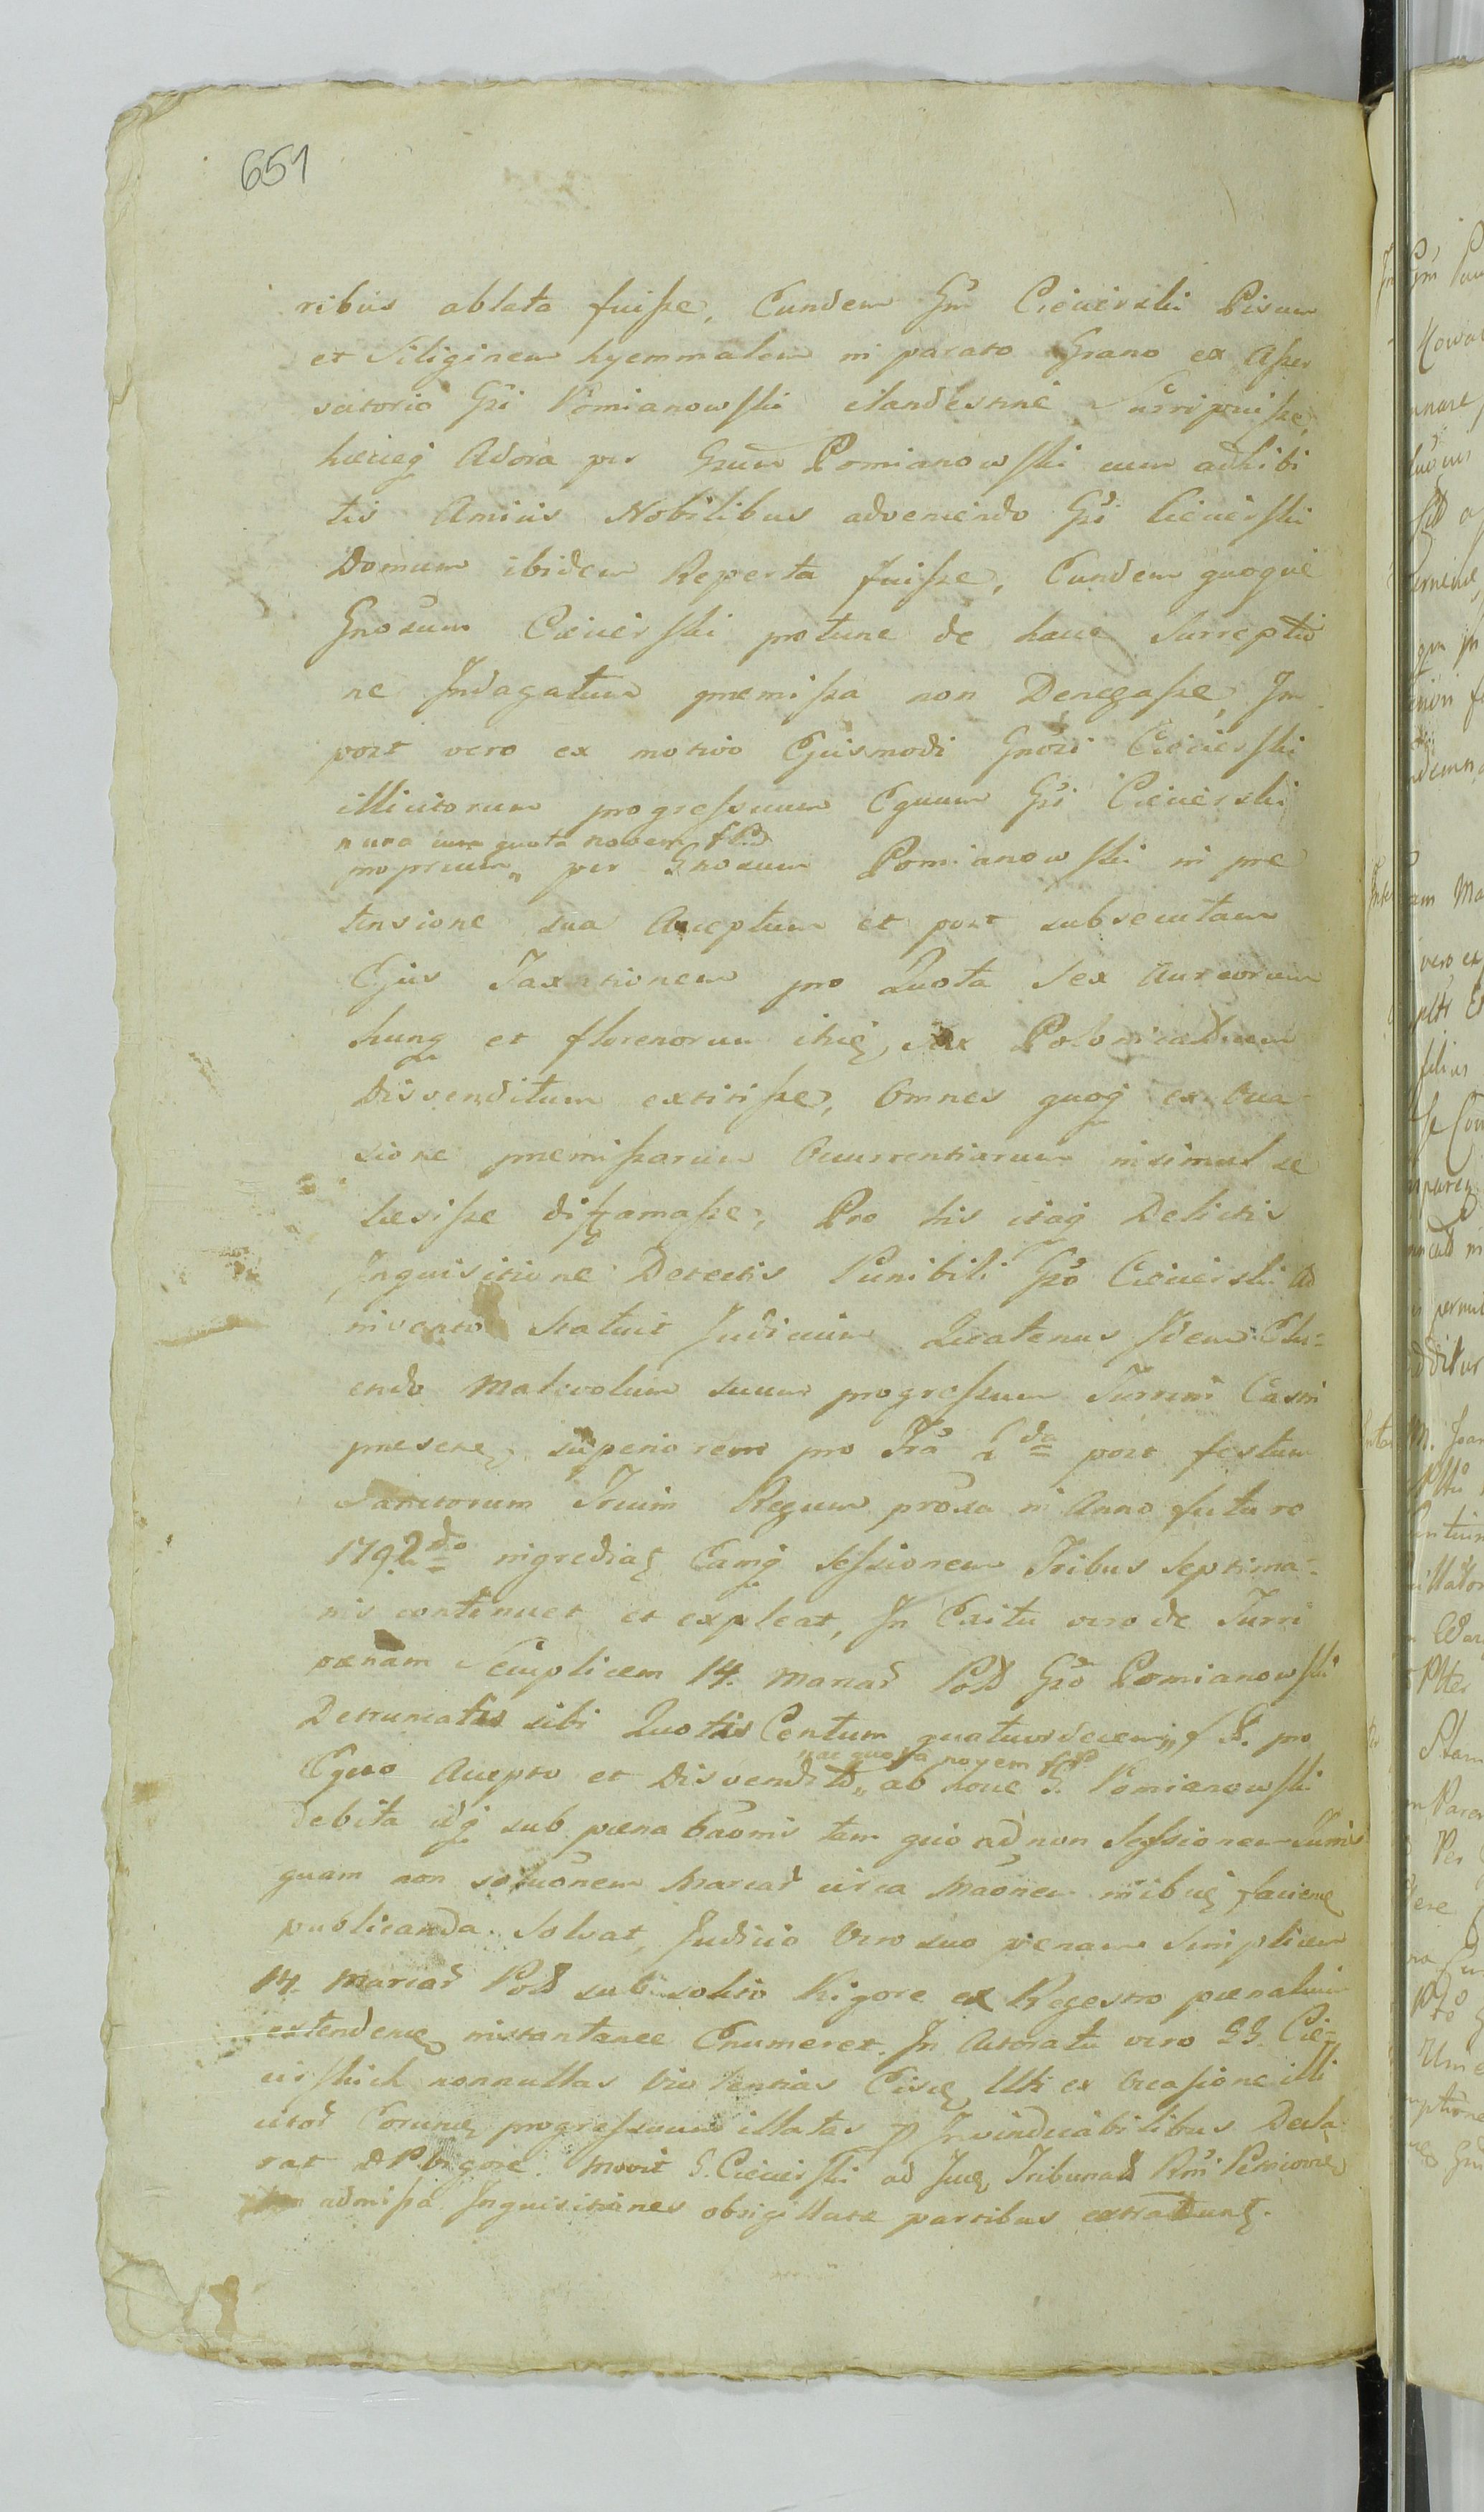 651
ribus ablata fuisse, Eundem Gm Ciecierski Pisum
et Siliginem hyemmalem in parato Grano ex Asser
vatorio Gsi Pomianowski clandestine Surripuisse,
hæcieq Adora per Gsum Pomianowski cum adhibi
tis Amicis Nobilibus adveniendo Gsi Ciecierski
Domum ibidem Reperta fuisse, Eundem quoque
Gnosum Ciecierski protunc de hacce Surreptio
ne Indagatum præmissa non Denegasse, Im
post vero ex motivo Ejusmodi Gnosi Ciecierski
illicitorum progressuum Equum Gsi Ciecierski
nunc cum quota novem f Pol
proprium per Gnosum Pomianowski in præ
tensione sua Acceptum et post subsecutam
Ejus Taxationem pro Quota Sex Aureorum
hung et florenorum itid, sex Polonicalium
Disvenditum extitisse, Omnes quoq ex Occa
sione præmissarum Occurrentiarum insimul se
læsisse diffamasse, Pro his itaq Delictis
Inquisitione Detectis Punibili Gso Ciecierski Ad
invento Statuit Judicium Quatenus Idem Elu-
endo Malevolum suum progressum Turrim Castri
præsent superiorem pro Fra 2da post festum
Sanctorum Trium Regum proxa in Anno futuro
1792do ingrediat Eamq Sessionem Tribus Septima-
nis continuet et expleat, In Exitu vero de Turri
pænam Simplicem 14. Marcar Poll Gso Pomianowski
Detruncatis sibi Quotis Centum quatuordecem f P. pro
ac quota novem f P
Equo Accepto et Disvendito ab hocce G. Pomianowski
debita idq sub pæna baonis tam quo ad non Sessionem Turris
quam non solutionem Marcar circa Maonem
publicanda. Solvat, Judicio Vero suo pænam Simplicem
14. Marcar Poll sub solito Rigore ex Regestro pænalium
extendend instantanee Enumeret. In Actoratu vero GG. Cie-
cierskich nonnullas Violentias Eisd Ulti ex Occasione illi
citor Eorund progressuum illatas p Invindicabilibus Decla
rat D P vigore. Movit G. Ciecierski ad Jud Tribunalia
admissa. Inquisitiones obsigillatæ partibus extradunt.